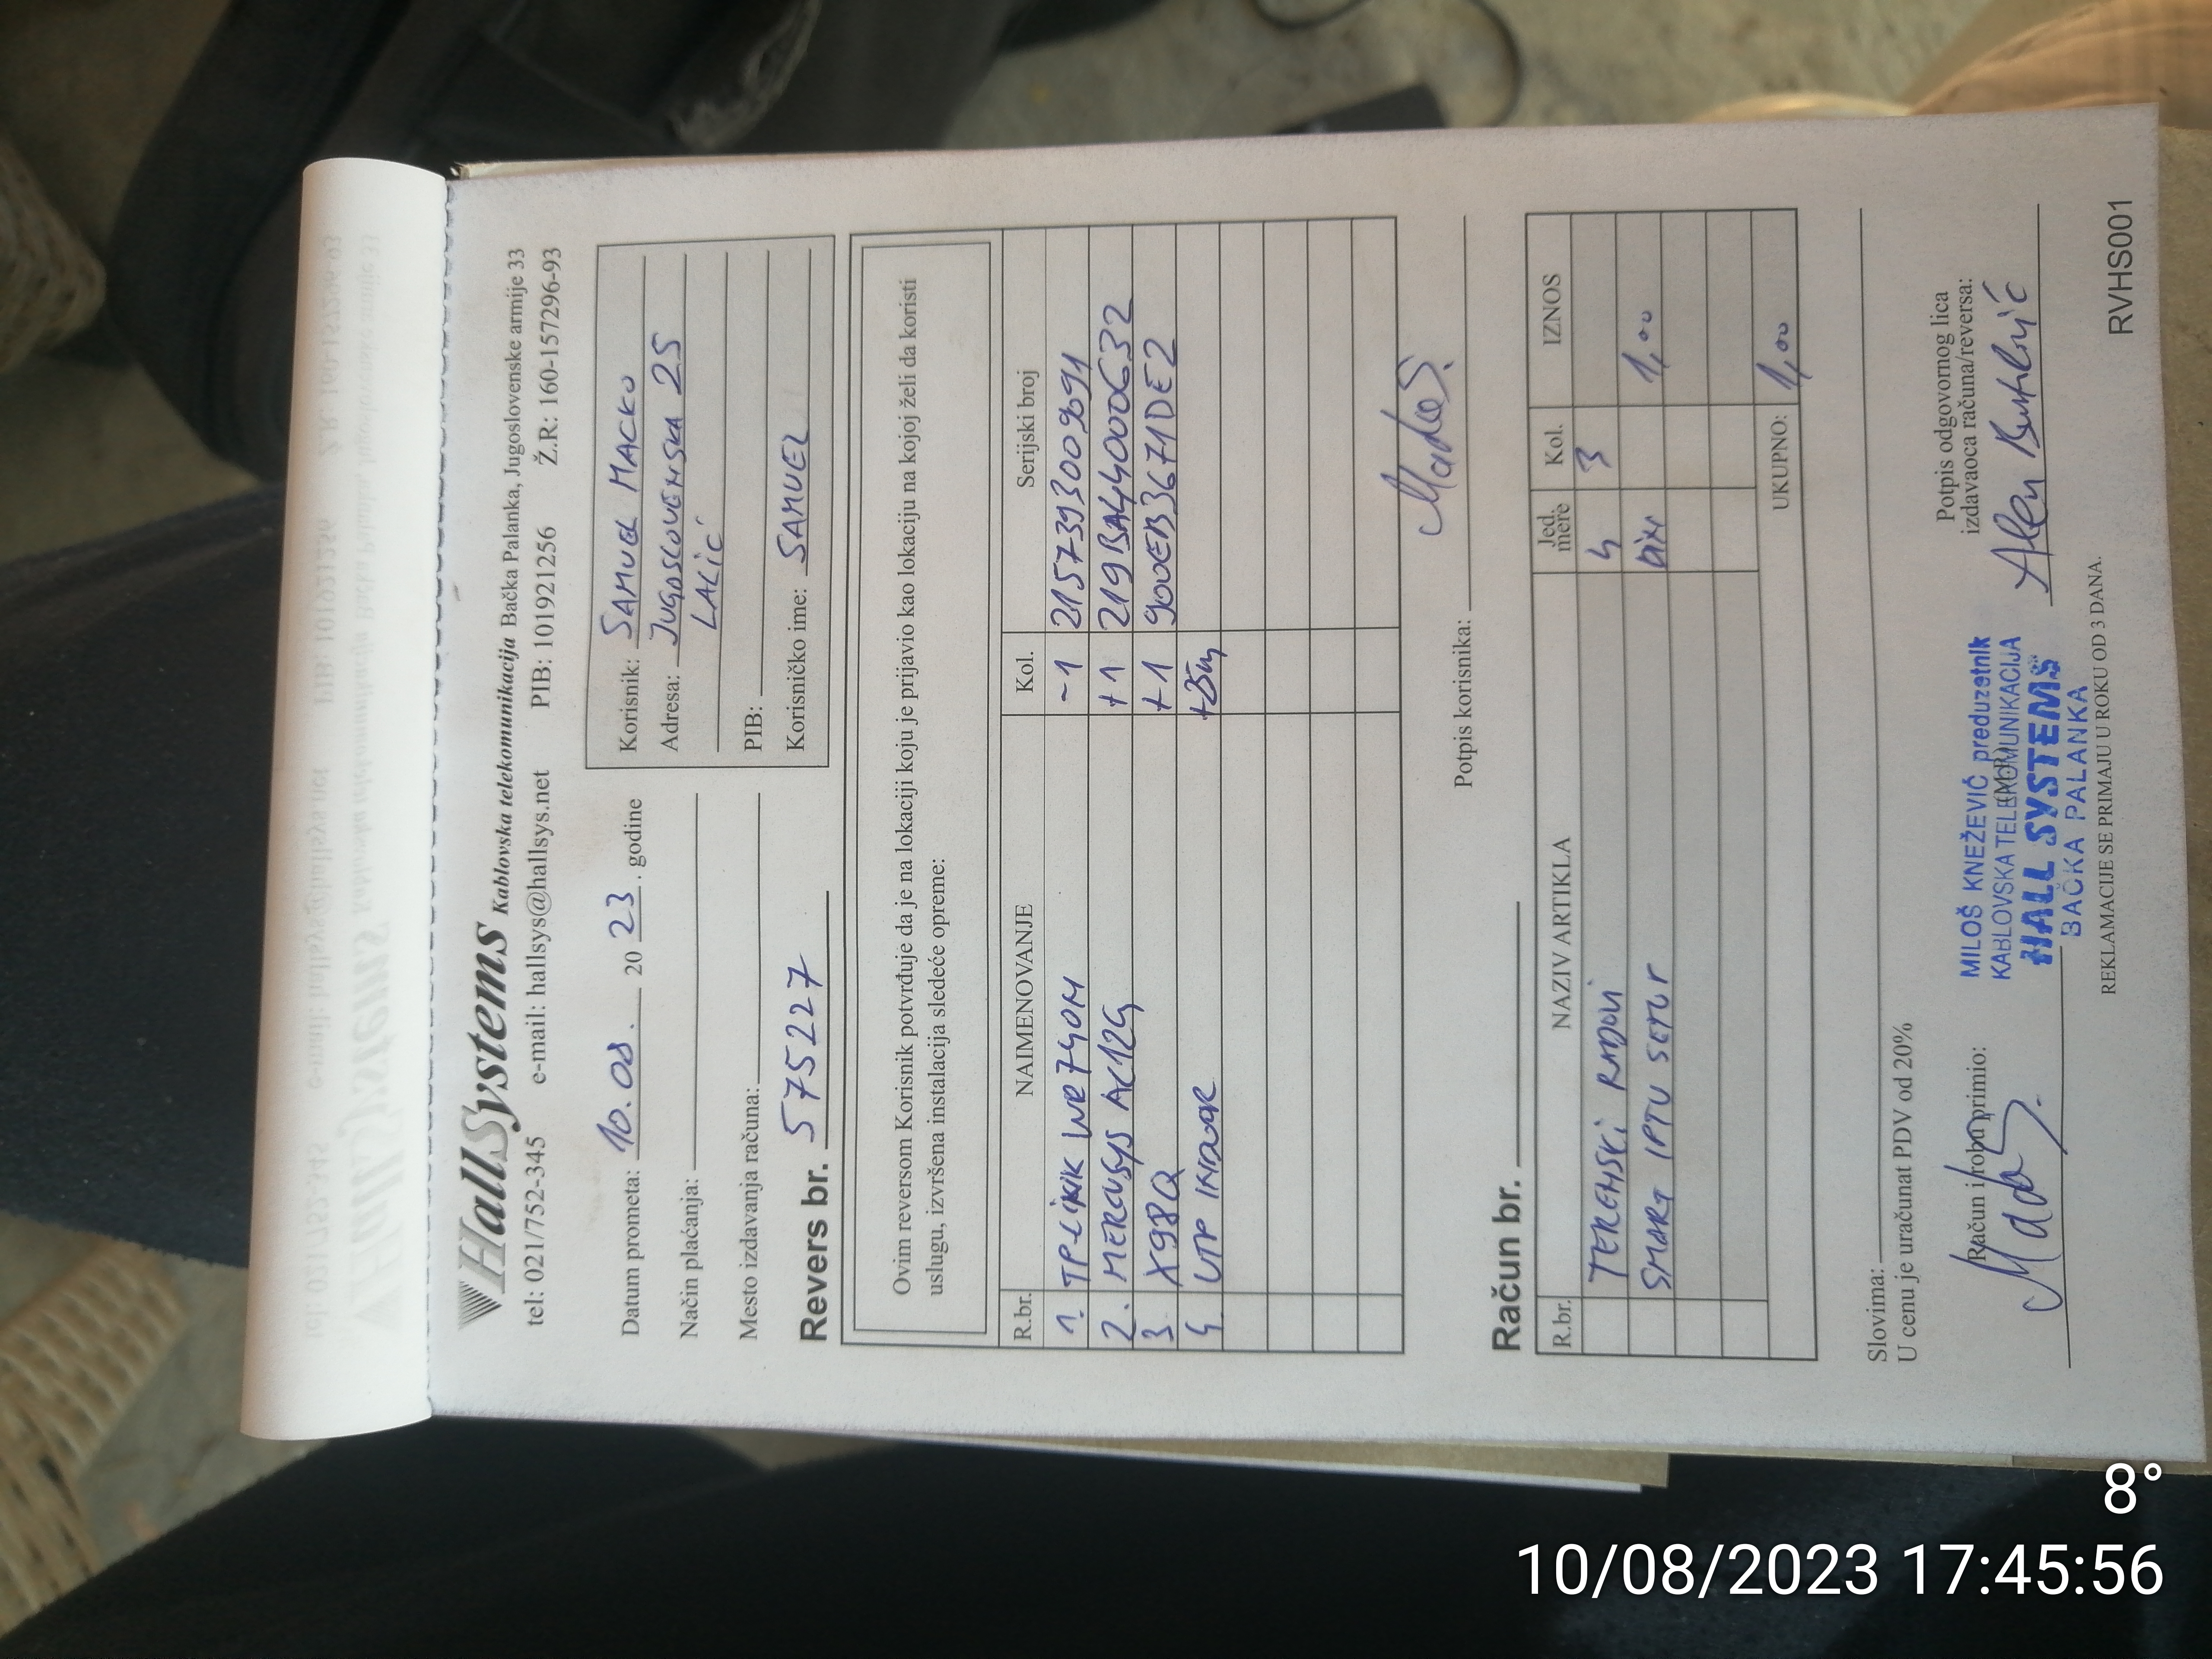 HallSystems Kablovska telekomunikacija Bačka Palanka, Jugoslovenske armije 33
tel: 021/752-345 e-mail: hallsys@hallsys.net PIB: 101921256 Ž.R.: 160-157296-93
Datum prometa: 10.08. 20 23. godine
Način plaćanja:
Mesto izdavanja računa:
Revers br. 575227
Korisnik: SAMUEL MACKO
Adresa: JUGOSLOVENSKA 25
LALIĆ
PIB:
Korisničko ime: SAMUEL
Ovim reversom Korisnik potvrđuje da je na lokaciji koju je prijavio kao lokaciju na kojoj želi da koristi
uslugu, izvršena instalacija sledeće opreme:
R.br. NAIMENOVANJE Kol. Serijski broj
1. TP-LINK WR740N -1 2157393009691
2. MERCUSYS AC12G +1 219BA44000632
3 X98Q +1 900EB3671DE2
4. UTP INDOOR
Potpis korisnika:
Račun br.
R.br. NAZIV ARTIKLA Jed. mere Kol. IZNOS
TERENSKI RADOVI h 3
SMART IPTV SETUP 1,00
UKUPNO: 1,00
Slovima:
U cenu je uračunat PDV od 20%
Račun i robu primio:
MILOŠ KNEŽEVIĆ preduzetnik
KABLOVSKA TELEKOMUNIKACIJA
HALL SYSTEMS
BAČKA PALANKA
Potpis odgovornog lica
izdavaoca računa/reversa:
REKLAMACIJE SE PRIMAJU U ROKU OD 3 DANA.
RVHS001
8°
10/08/2023 17:45:56